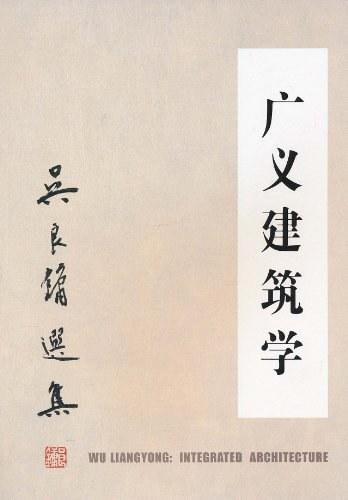 广义建筑学
吴良镛選集
WU LIANGYONG: INTEGRATED ARCHITECTURE